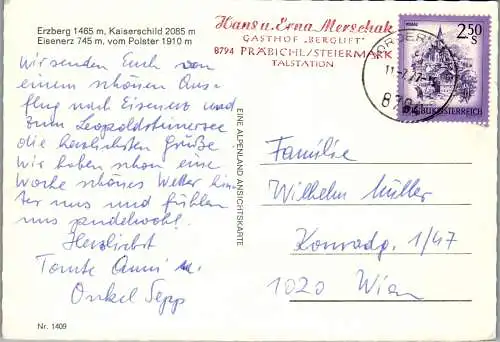 Erzberg 1465 m, Kaiserschild 2085 m
Eisenerz 745 m, vom Polster 1910 m
Wir senden Euch von
einem schönen Aus-
flug nach Eisenerz und
zum Leopoldsteinersee
die herzlichsten Grüße.
Wir haben schon eine
Woche schönes Wetter hin-
ter uns und fühlen
uns pudelwohl.
Herzlichst
Tante Anni u.
Onkel Sepp
Nr. 1409
EINE ALPENLAND ANSICHTSKARTE
Hans u. Erna Merschak
GASTHOF „BERGLIFT"
8794 PRÄBICHL/STEIERMARK
TALSTATION
2.50
S
REPUBLIK ÖSTERREICH
Familie
Wilhelm Müller
Konradg. 1/47
1020 Wien